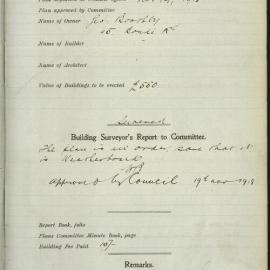 Plan approved by Committee
Name of Owner Geo Boothby
15 Bondi Rd
Name of Builder
Name of Architect
Value of Buildings to be erected £550
Building Surveyor's Report to Committee.
The plan is in order, save that it
is Weatherboard
Approved by Council 19th
Report Book, folio
Plans Committee Minute Book, page
Building Fee Paid 10/-
Remarks.